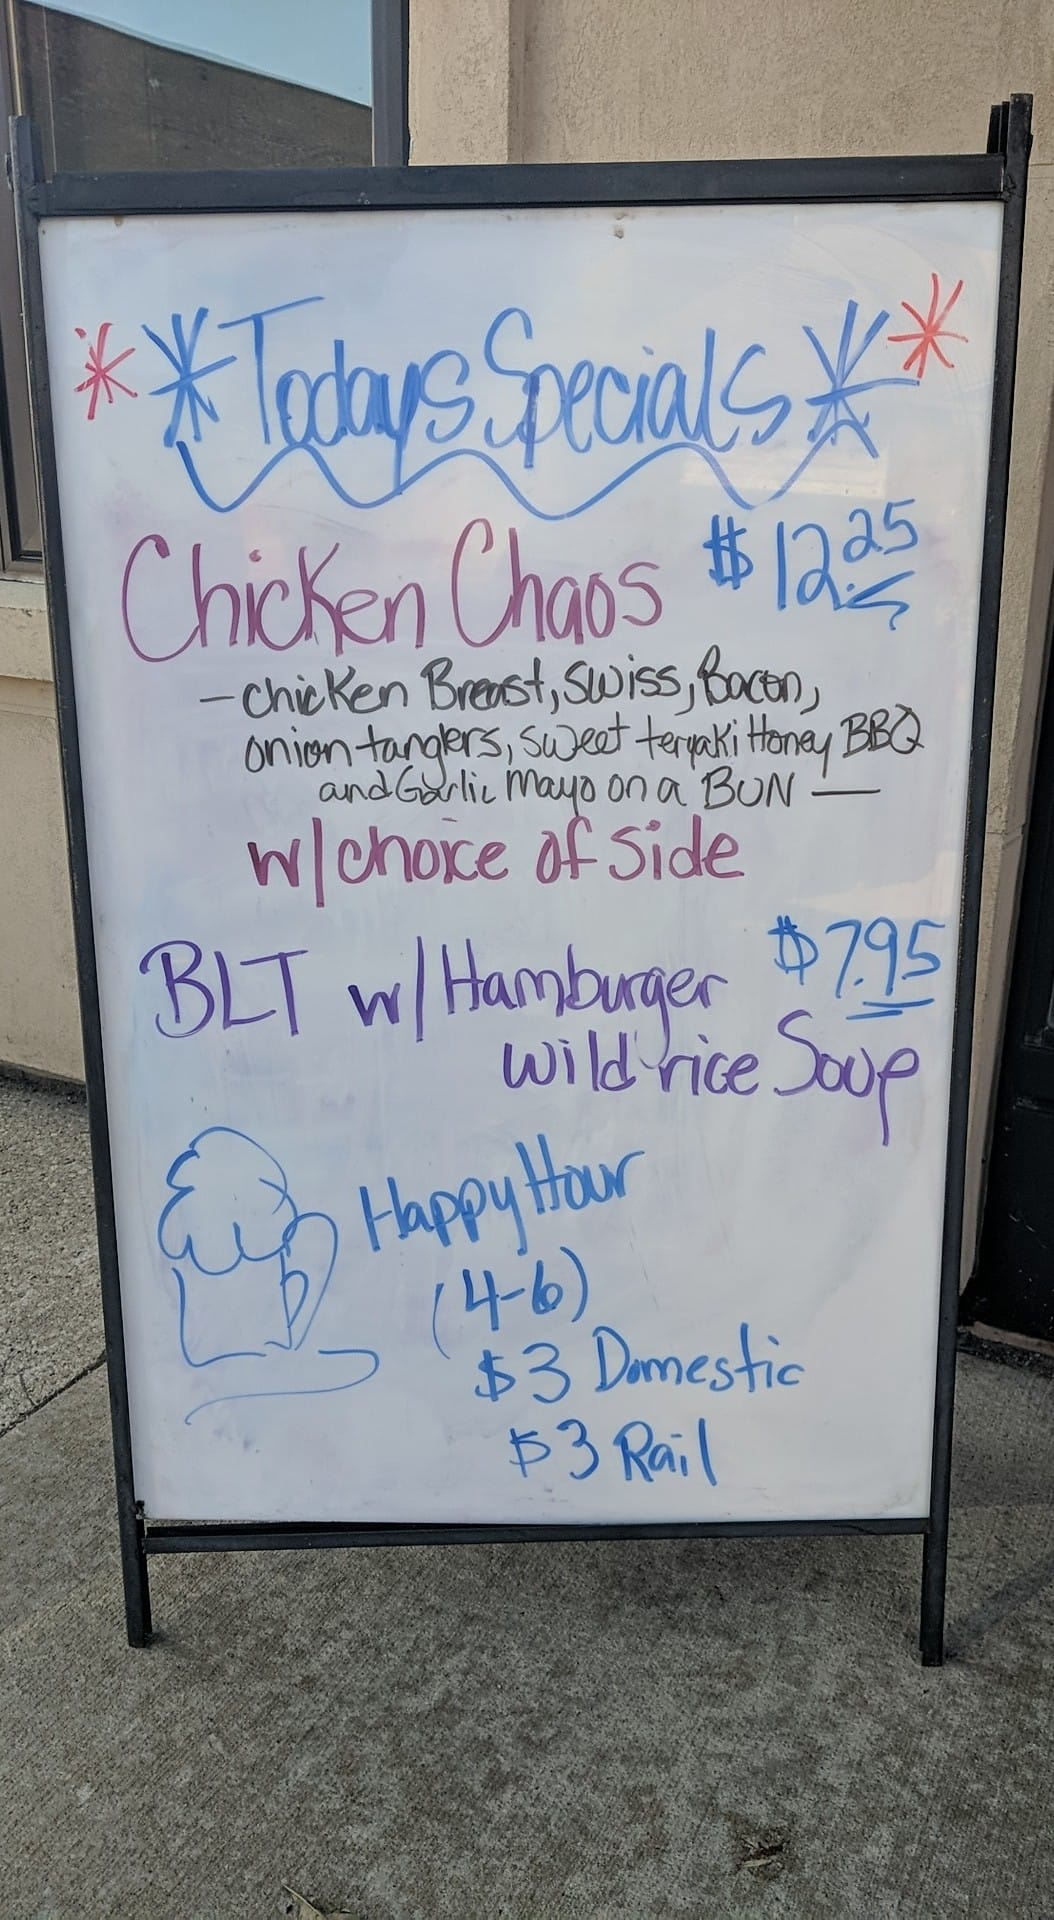 * * Todays Specials * *
Chicken Chaos $12.25
- chicken Breast, swiss, Bacon,
onion tanglers, sweet teryaki Honey BBQ
and Garlic Mayo on a BUN —
w/choice of side
BLT w/Hamburger $7.95
wild rice Soup
Happy Hour
(4-6)
$3 Domestic
$3 Rail